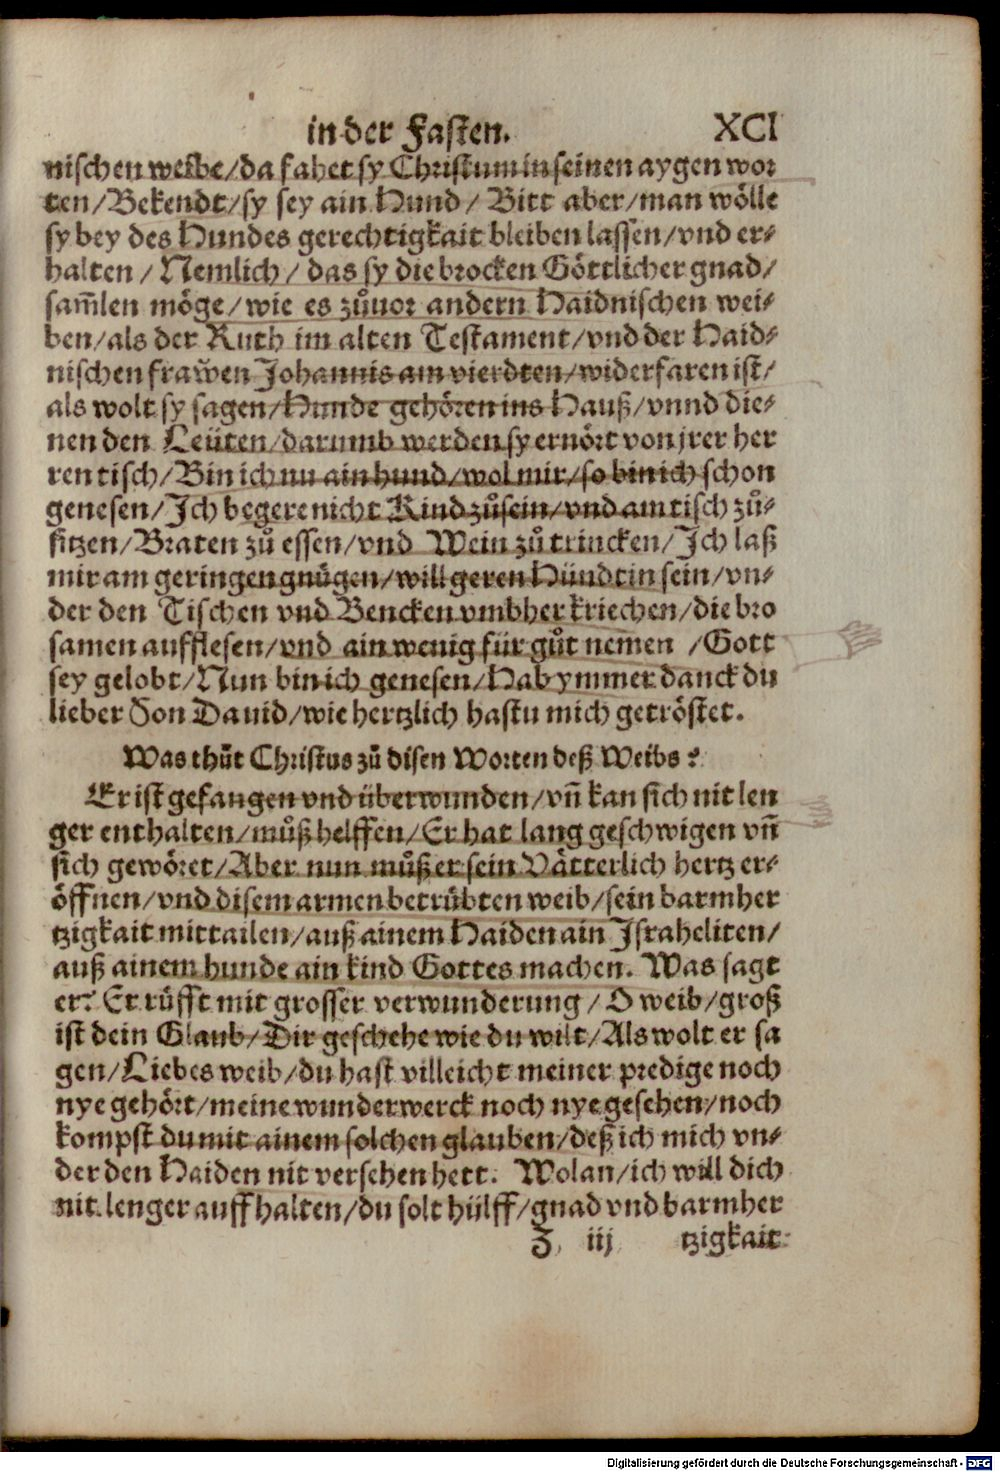 in der Fasten. XCI
nischen weibe/da fahet sy Christum in seinen aygen wor
ten/Bekendt/sy sey ain Hund/ Bitt aber/man wölle
sy bey des Hundes gerechtigkait bleiben lassen/vnd er-
halten/Nemlich/das sy die brocken Göttlicher gnad/
sam̃len möge/wie es zůuor andern Haidnischen wei-
ben/als der Ruth im alten Testament/vnd der Haid-
nischen frawen Johannis am vierdten/widerfaren ist/
als wolt sy sagen/Hunde gehören ins Hauß/vnnd die-
nen den Leüten/darumb werden sy ernört von jrer her
ren tisch/Bin ich nu ain hund/wol mir/so bin ich schon
genesen/Ich begere nicht Kind zůsein/vnd am tisch zů-
sitzen/Braten zů essen/vnd Wein zů trincken/Ich laß
mir am geringen gnügen/will geren Hündtin sein/vn-
der den Tischen vnd Bencken vmbher kriechen/die bro
samen aufflesen/vnd ain wenig für gůt nemen /Gott
sey gelobt/Nun bin ich genesen/Hab ymmer danck du
lieber Son Dauid/wie hertzlich hastu mich getröstet.
Was thůt Christus zů disen Worten deß Weibs?
Er ist gefangen vnd überwunden/vñ kan sich nit len
ger enthalten/můß helffen/Er hat lang geschwigen vñ
sich gewöret/Aber nun můß er sein Vätterlich hertz er-
öffnen/vnd disem armen betrübten weib/sein barmher
tzigkait mittailen/auß ainem Haiden ain Israheliten/
auß ainem hunde ain kind Gottes machen. Was sagt
er? Er rüfft mit grosser verwunderung/O weib/groß
ist dein Glaub/Dir geschehe wie du wilt/Als wolt er sa
gen/Liebes weib/du hast villeicht meiner predige noch
nye gehört/meine wunderwerck noch nye gesehen/noch
kompst du mit ainem solchen glauben/deß ich mich vn-
der den Haiden nit versehen hett. Wolan/ich will dich
nit lenger auffhalten/du solt hülff/gnad vnd barmher
Z iij tzigkait
Digitalisierung gefördert durch die Deutsche Forschungsgemeinschaft - DFG